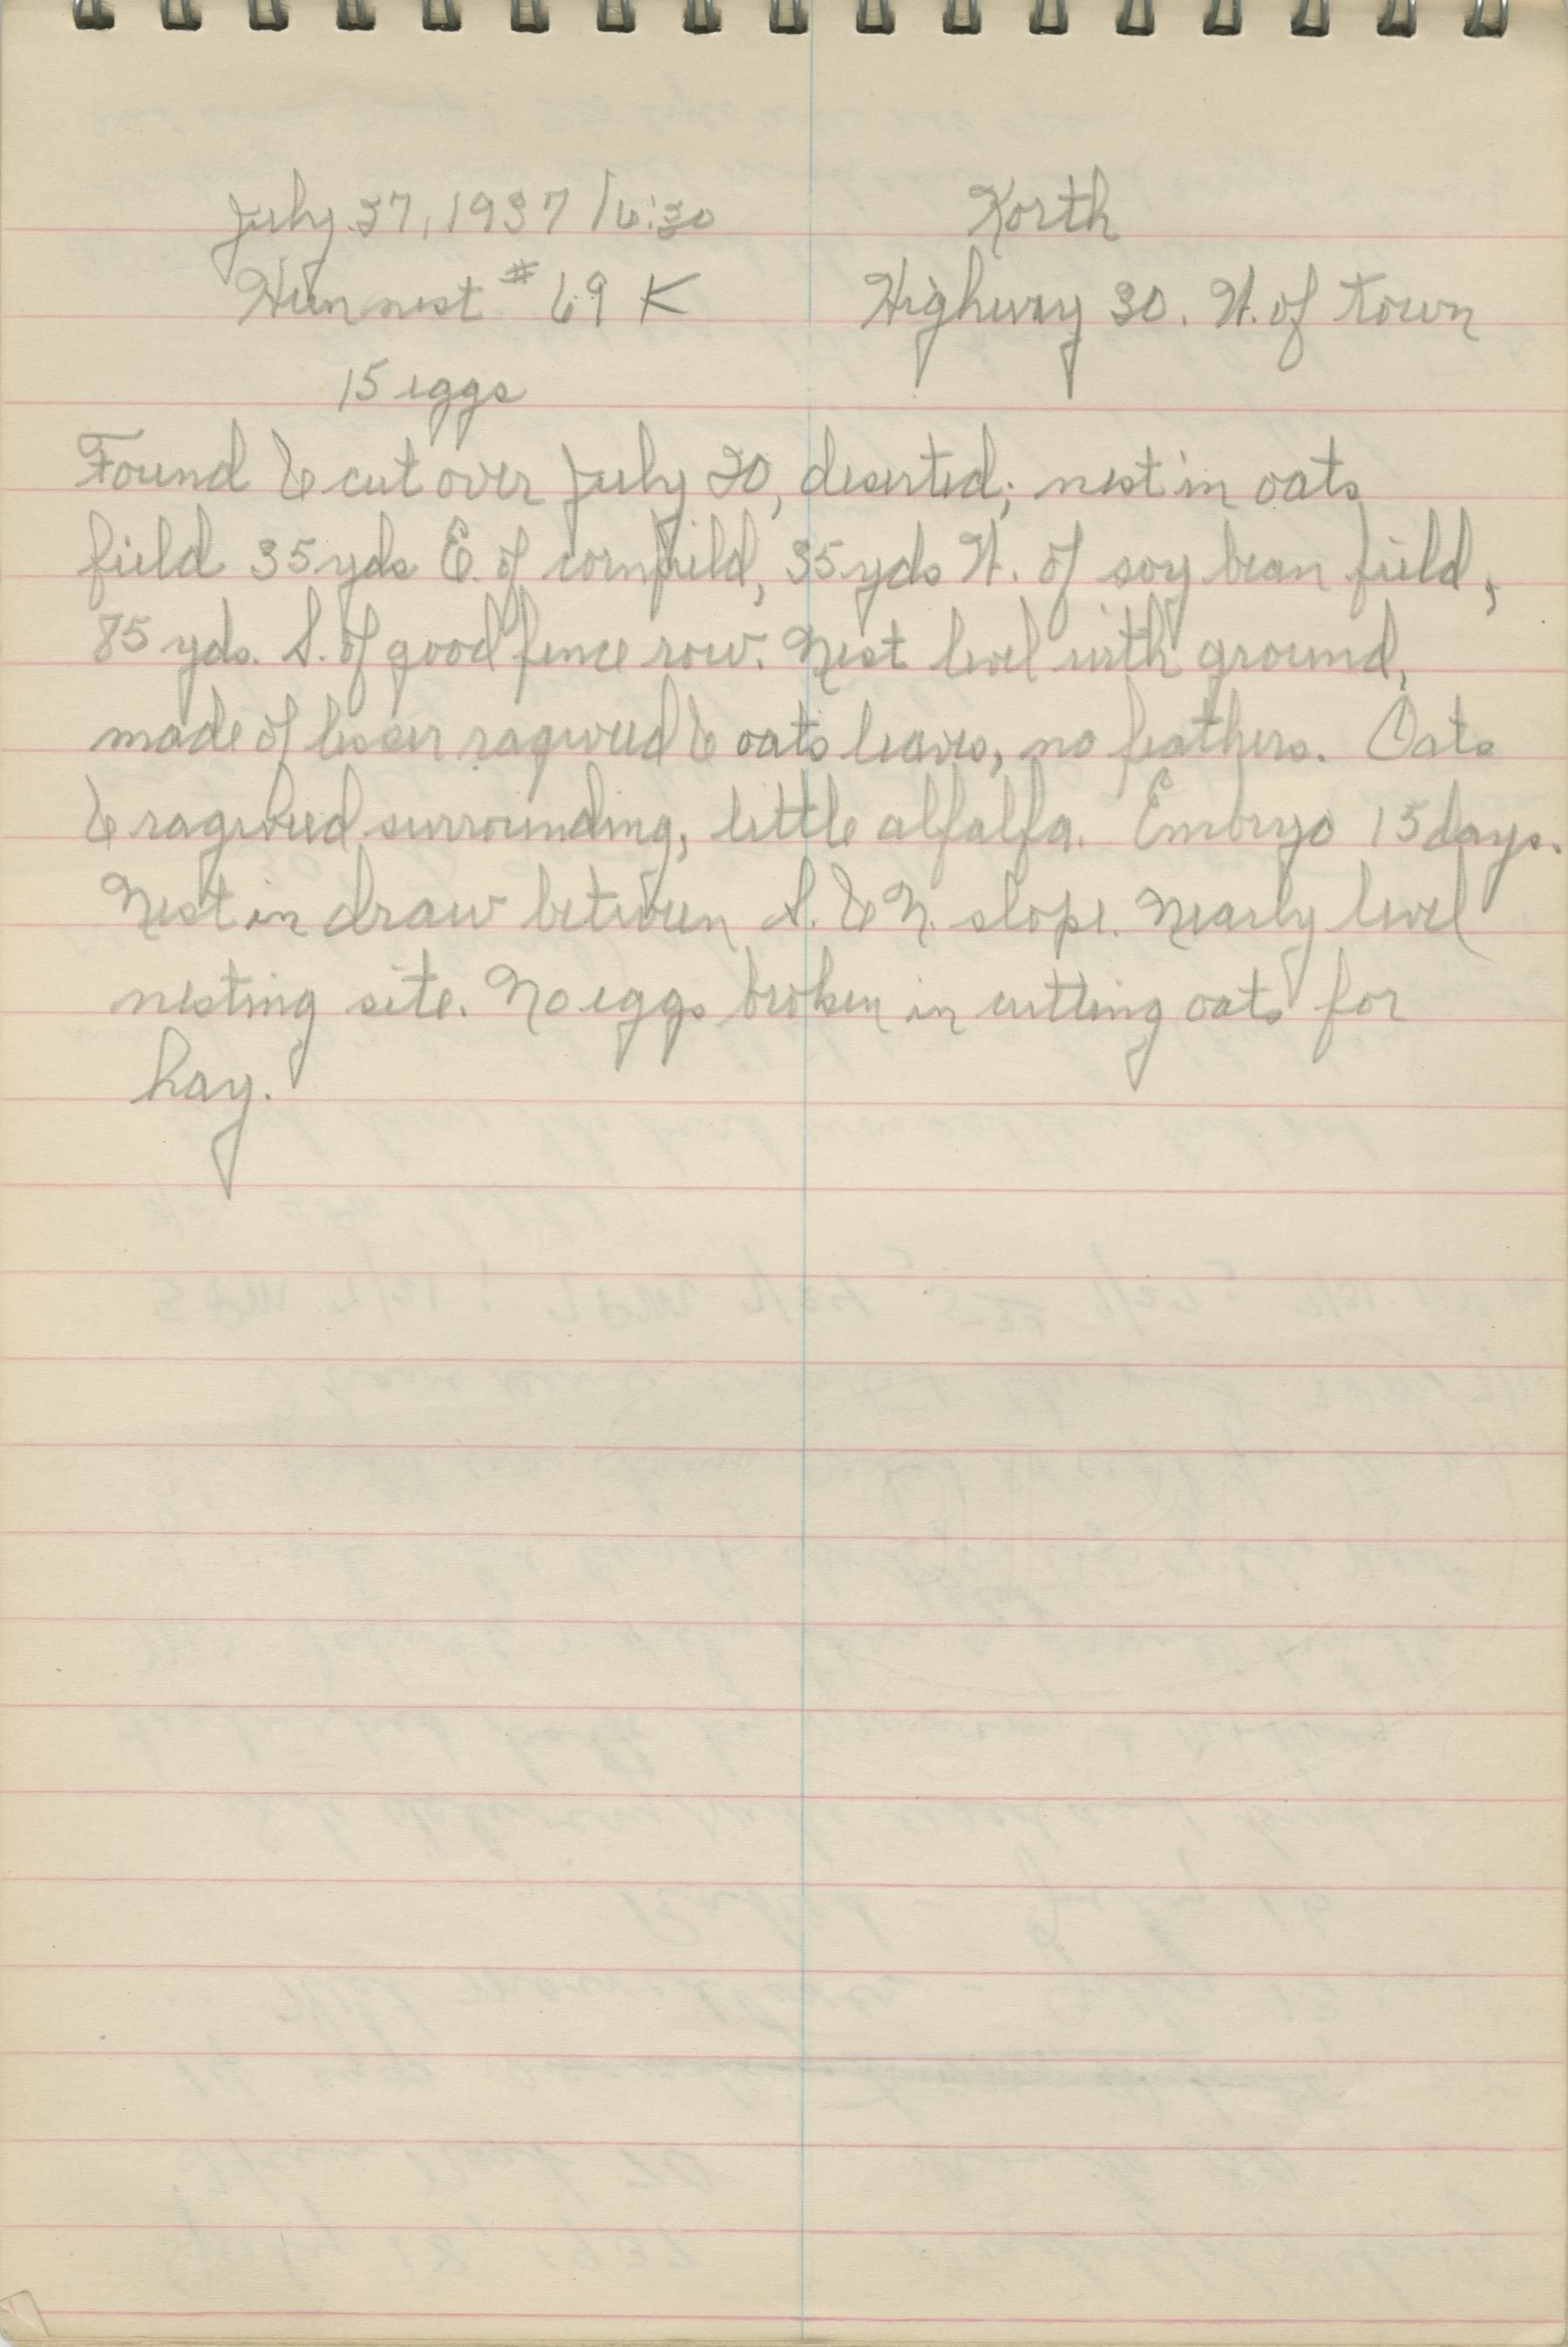 July 27, 1937 16:30 Korth
Hun nest # 69 K Highway 30. W. of town
15 eggs
Found & cut over July 20, deserted; nest in oats
field 35 yds E. of cornfield, 35 yds W. of soy bean field,
85 yds. S. of good fence row. Nest level with ground,
made of lesser ragweed & oats leaves, no feathers. Oats
& ragweed surrounding, little alfalfa. Embryo 15 days.
Nest in draw between S. & N. slope. Nearly level
nesting site. No eggs broken in cutting oats for
hay.